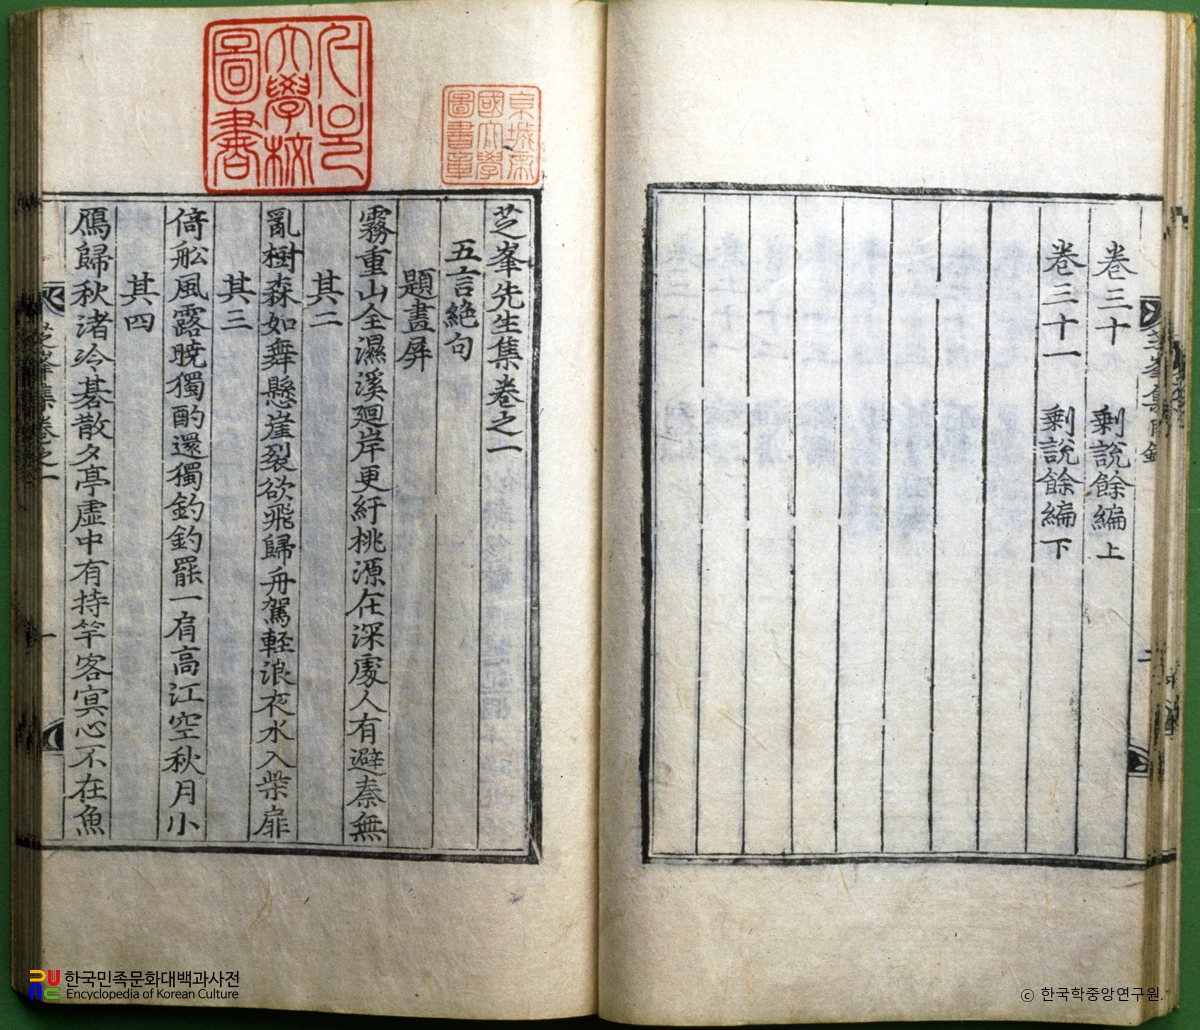 卷三十 剩說餘編上
卷三十一 剩說餘編下
芝峯先生集卷之一
五言絶句
題畫屏
霧重山全濕溪廻岸更紆桃源在深處人有避秦無
其二
亂樹森如舞懸崖裂欲飛歸舟駕軽浪夜水入柴扉
其三
倚舩風露曉獨酌還獨釣釣罷一肩高江空秋月小
其四
鴈歸秋渚冷碁散夕亭虛中有持竿客冥心不在魚
芝峯集卷之一
一
京城帝
國大學
圖書章
大學校
圖書
한국민족문화대백과사전
Encyclopedia of Korean Culture
ⓒ 한국학중앙연구원.